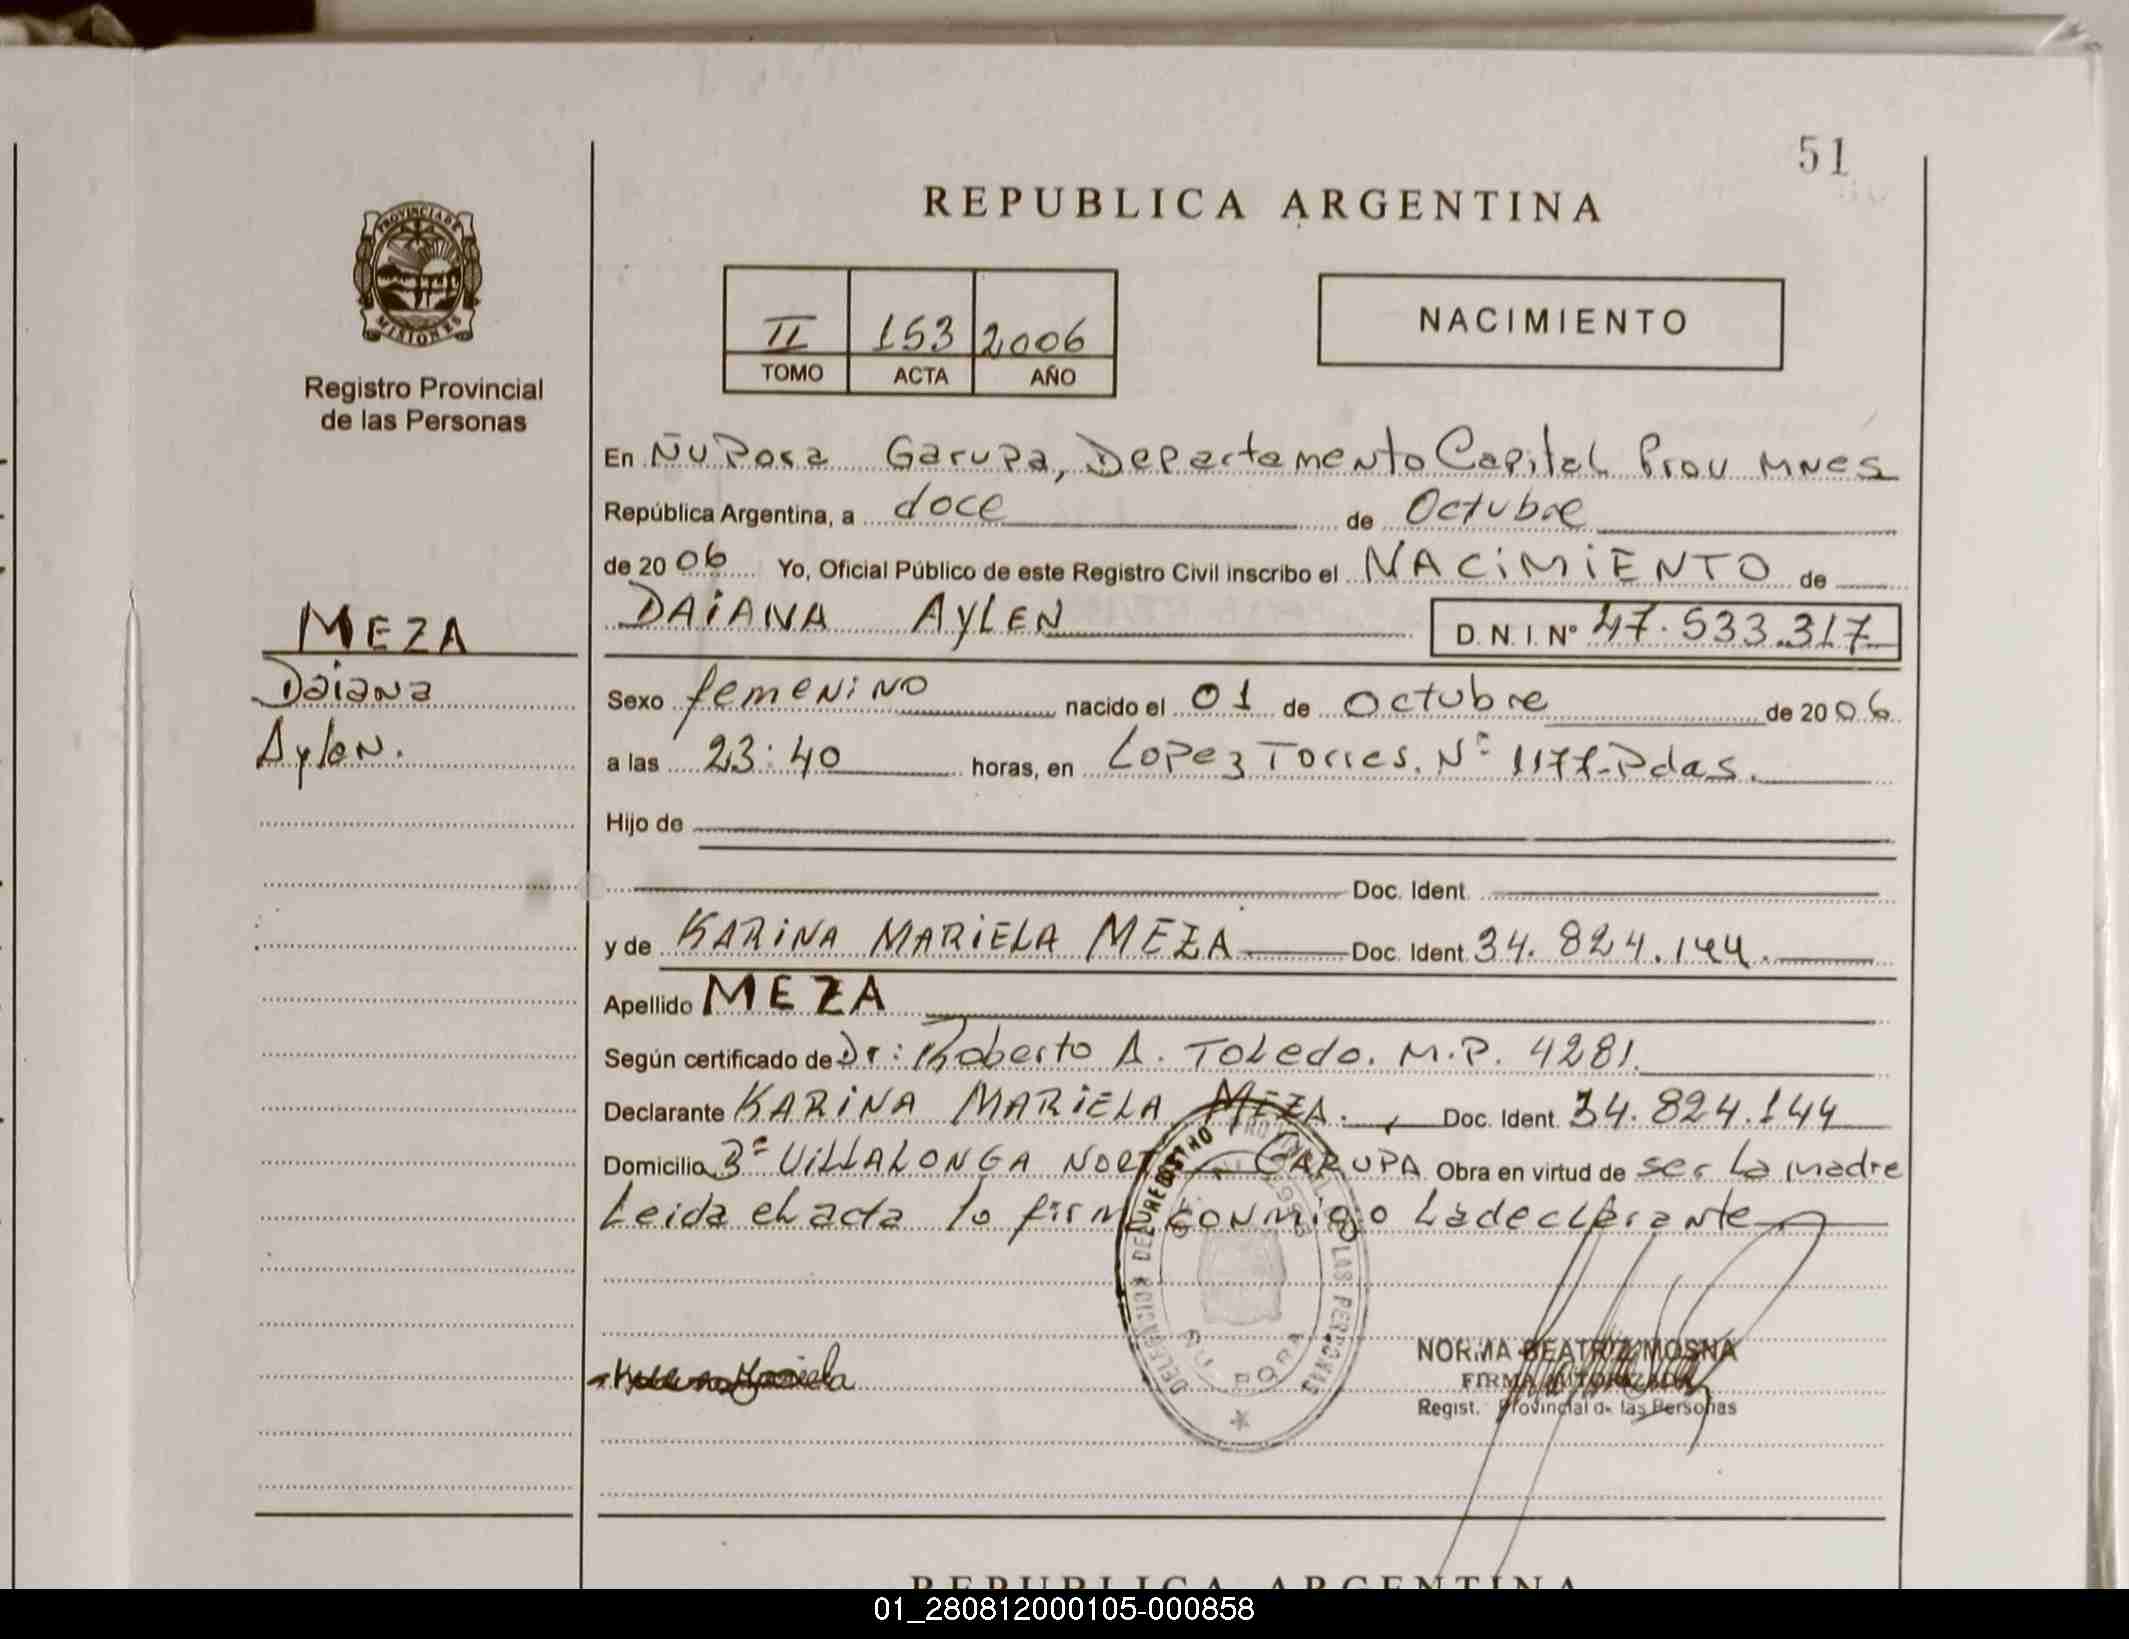 51
REPUBLICA ARGENTINA
PROVINCIA DE
MISIONES
Registro Provincial
de las Personas
II 153 2006
TOMO ACTA AÑO
NACIMIENTO
En Ñu Pora Garupa, Departamento Capital Prov Mnes
República Argentina, a doce de Octubre
de 2006 Yo, Oficial Público de este Registro Civil inscribo el NACIMIENTO de
DAIANA AYLEN D. N. I. Nº 47.533.317
MEZA
Daiana
Aylen.
Sexo femenino nacido el 01 de Octubre de 2006
a las 23:40 horas, en Lopez Torres. Nº 1177-Pdas.
Hijo de
Doc. Ident.
y de KARINA MARIELA MEZA Doc. Ident. 34.824.144.
Apellido MEZA
Según certificado de Dr: Roberto A. Toledo. M.P. 4281.
Declarante KARINA MARIELA MEZA. Doc. Ident. 34.824.144
Domicilio Bº VILLALONGA NORTE GARUPA Obra en virtud de ser La madre
Leida el acta lo firma conmigo La declarante
DELEGACION DEL REGISTRO PROVINCIAL DE LAS PERSONAS
ÑU PORA
Mariela
NORMA BEATRIZ MOSNA
FIRMA AUTORIZADA
Regist. Provincial de las Personas
REPUBLICA ARGENTINA
01_280812000105-000858